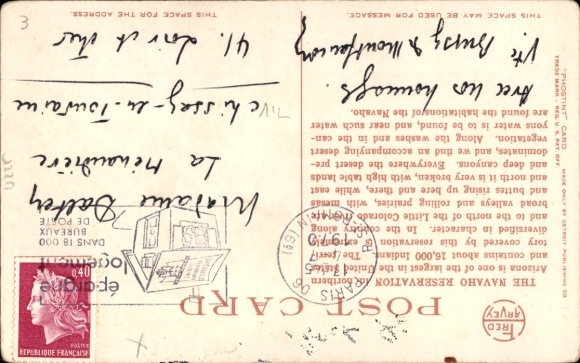 THIS SPACE MAY BE USED FOR MESSAGE.
THIS SPACE FOR THE ADDRESS.
POST CARD
FRED HARVEY
THE NAVAHO RESERVATION in Northern
Arizona is one of the largest in the United States
and contains about 16,000 Indians. The terri-
tory covered by this reservation is extremely
diversified in character. In the country along
and to the north of the Little Colorado River are
broad valleys and rolling prairies, with mesas
and buttes rising up here and there, while east
and north it is very broken, with high table lands
and deep canyons. Everywhere the desert pre-
dominates, and we find an accompanying desert
vegetation. Along the washes and in the can-
yons water is to be found, and near such water
are found the habitations of the Navaho.
Avec nos hommages.
Vte Bussy de Montfaucon
"PHOSTINT" CARD.
TRADE MARK - REG. U. S. PAT. OFF.
MADE ONLY BY DETROIT PUBLISHING CO
PARIS 06
1970
épargne
logement
DANS 18 000
BUREAUX
DE POSTE
0,40
POSTES
RÉPUBLIQUE FRANÇAISE
Madame
La Ménaudière
Chissey-en-Touraine
41. Loir et Cher
3